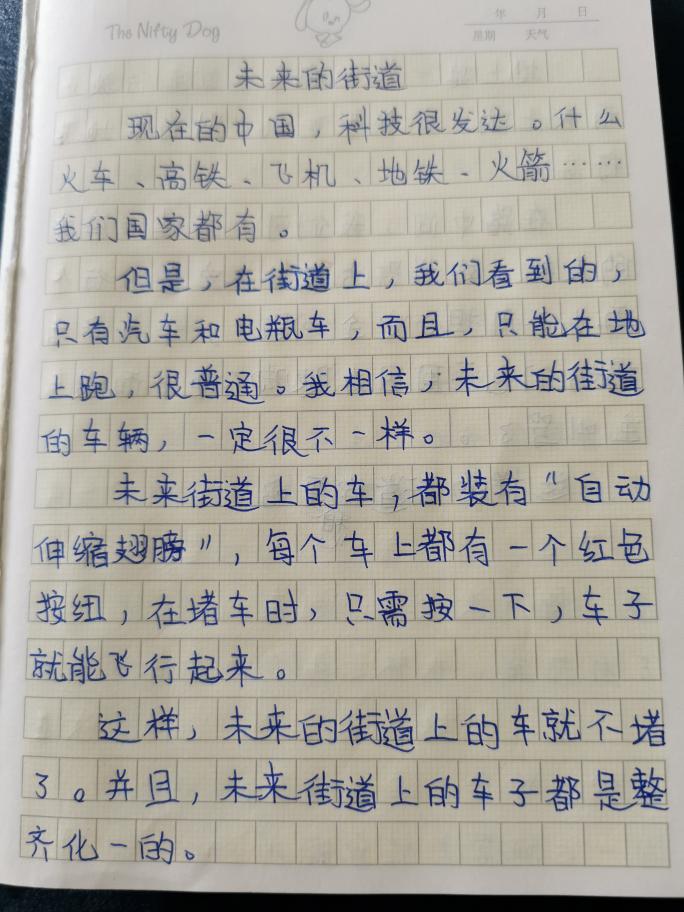 The Nifty Dog
年 月 日
星期 天气
未来的街道
现在的中国，科技很发达。什么
火车、高铁、飞机、地铁、火箭……
我们国家都有。
但是，在街道上，我们看到的，
只有汽车和电瓶车，而且，只能在地
上跑，很普通。我相信，未来的街道
的车辆，一定很不一样。
未来街道上的车，都装有“自动
伸缩翅膀”，每个车上都有一个红色
按纽，在堵车时，只需按一下，车子
就能飞行起来。
这样，未来的街道上的车就不堵
了。并且，未来街道上的车子都是整
齐化一的。